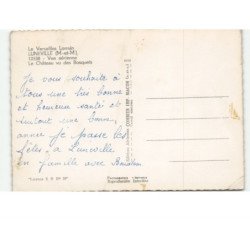 Le Versailles Lorrain
LUNEVILLE (M.-et-M.)
12338 - Vue aérienne
Le Château vu des Bosquets
Je vous souhaite à
tous une très bonne
et heureuse santé et
surtout une bonne
année je passe les
fêtes à Lunéville
en famille avec